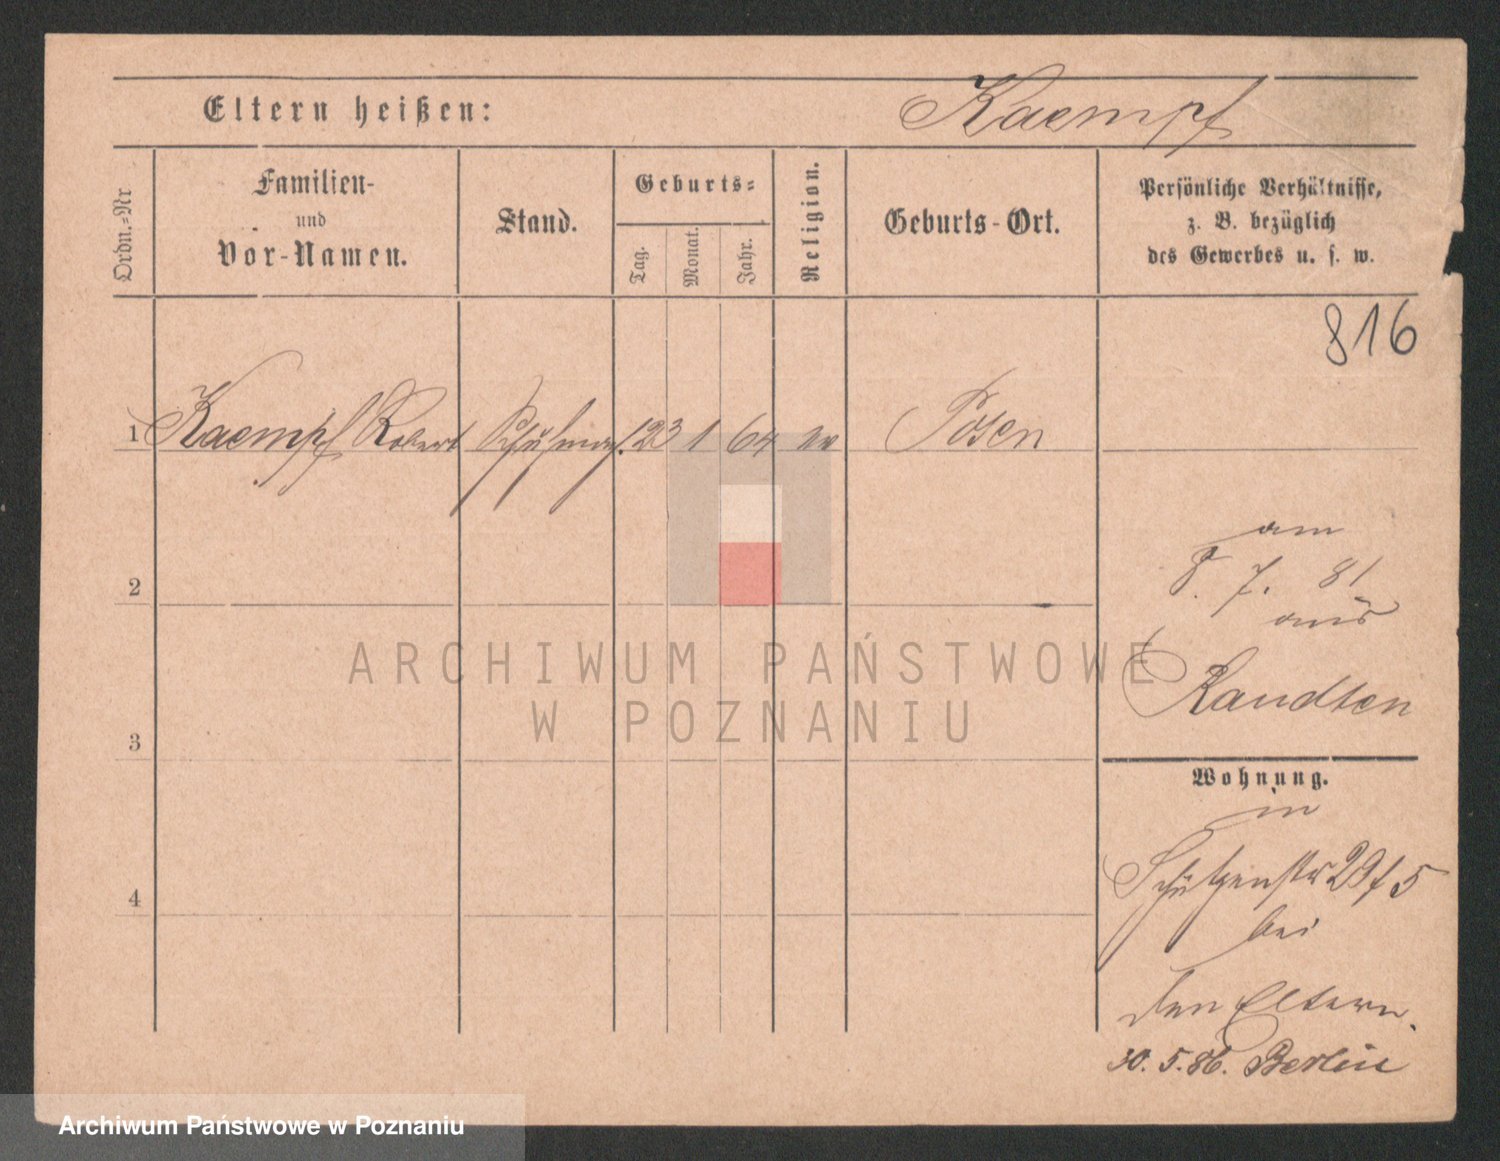 Eltern heißen: Kaempf
Ordn.=Nr
Familien-
und
Vor-Namen.
Stand.
Geburts=
Tag.
Monat.
Jahr.
Religion.
Geburts-Ort.
Persönliche Verhältnisse,
z. B. bezüglich
des Gewerbes u. s. w.
816
1 Kaempf Robert 23 1 64 Posen
am
8. 7. 81
aus
Raudten
2
3
4
Wohnung.
in
Schützenstr 29/5
bei
den Eltern.
30. 5. 86. Berlin
ARCHIWUM PAŃSTWOWE
W POZNANIU
Archiwum Państwowe w Poznaniu